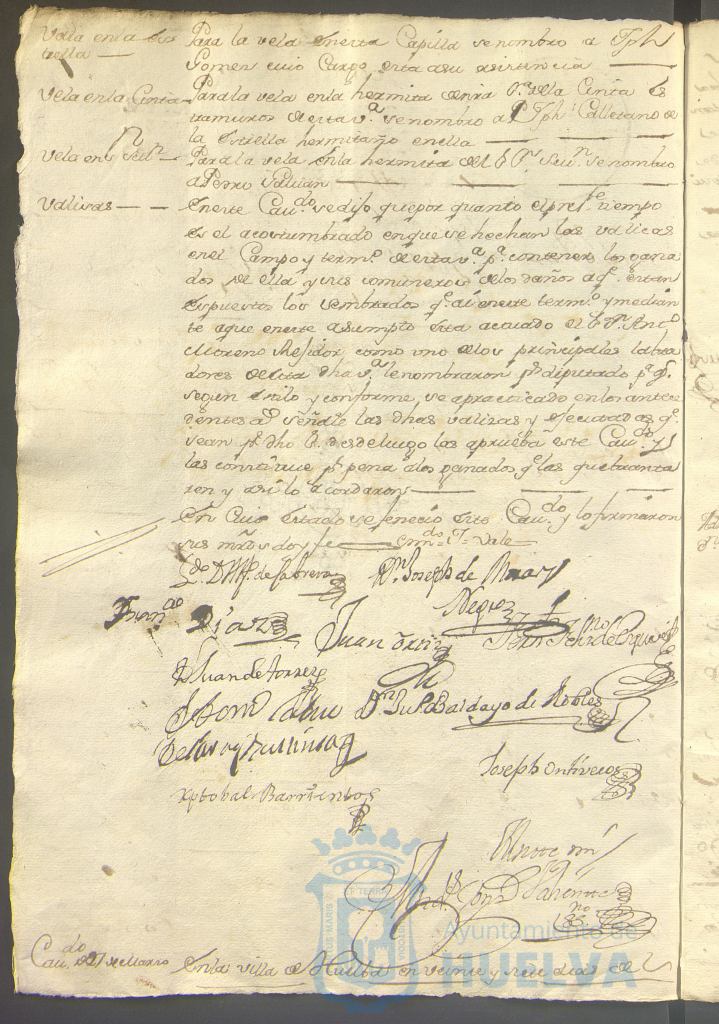 Vela en la Es
trella —
Para la vela en esta Capilla se nombro a Jph
Gomes cuio Cargo esta a su asistencia —
Vela en la Cinta
Para la vela en la hermita de nra Sra de la Cinta Es
tramuros de esta va se nombro a Jph Calletano de
la Estrella hermitaño en ella —
Vela en Sn Sebn
Para la vela en la hermita del Sr Sn Sevn se nombro
a Pedro
Valisas — —
En este Caudo se dijo que por quanto el preste tiempo
es el acostumbrado en que se hechan las valicas
en el Campo y termo de esta va pa contener los gana
dos de ella y sus comuneros de los daños a qe estan
espuestos los sembrados qe ai en este termo y median
te a que en este asumpto esta actuado el Sr Anto
Moreno Residor, como uno de los principales labra
dores de esta dha va le nombraron pr diputado pa qe
segun estilo y conforme se a practicado en los antece
dentes as señale las dhas valizas y efectuadas qe
sean pr dho Sr desde luego las aprueba este Caudo y
las constituie pr pena a los ganados qe las quebranta
ren y asi lo acordaron —
En Cuio estado se fenecio este Caudo y lo firmaron
sus mrds doy fe — emdo = J = Vale
Ldo D. Ml. de Cabrera
Dn Joseph de
Negro
Fernando Diaz
Juan Ortiz
D Juan de torres
Dn Jul Baldayo de Robles
Joseph Ontiveros
Xptobal Barrientos
Ante mi
no
Caudo de 27 de Marzo
En la villa de Huelba en veinte y siete dias de
Ayuntamiento de
HUELVA